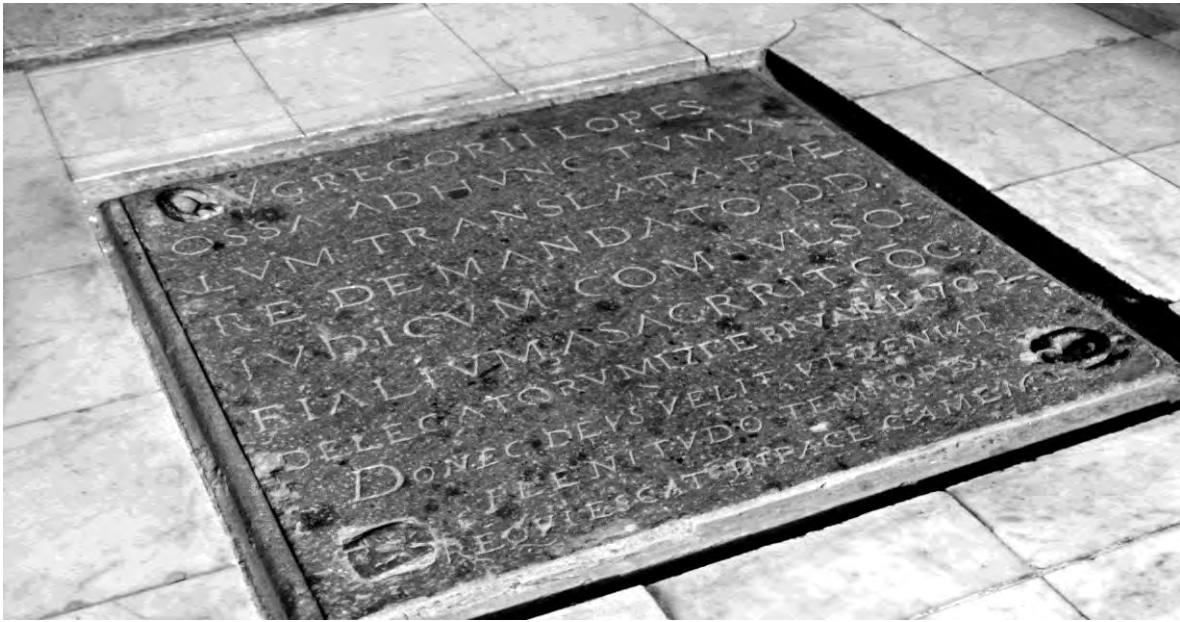 V GREGORII LOPES
OSSA AD HVNC TVMV
LVM TRANSLATA FVE
RE DE MANDATO DD
JVDICVM COM VLSO
RIALIVM A SACR RIT COG
DELEGATORVM 17 FEBRVARII
DONEC DEVS VELIT, VT VENIAT
PLENITVDO TEMPORIS
REQVIESCAT IN PACE